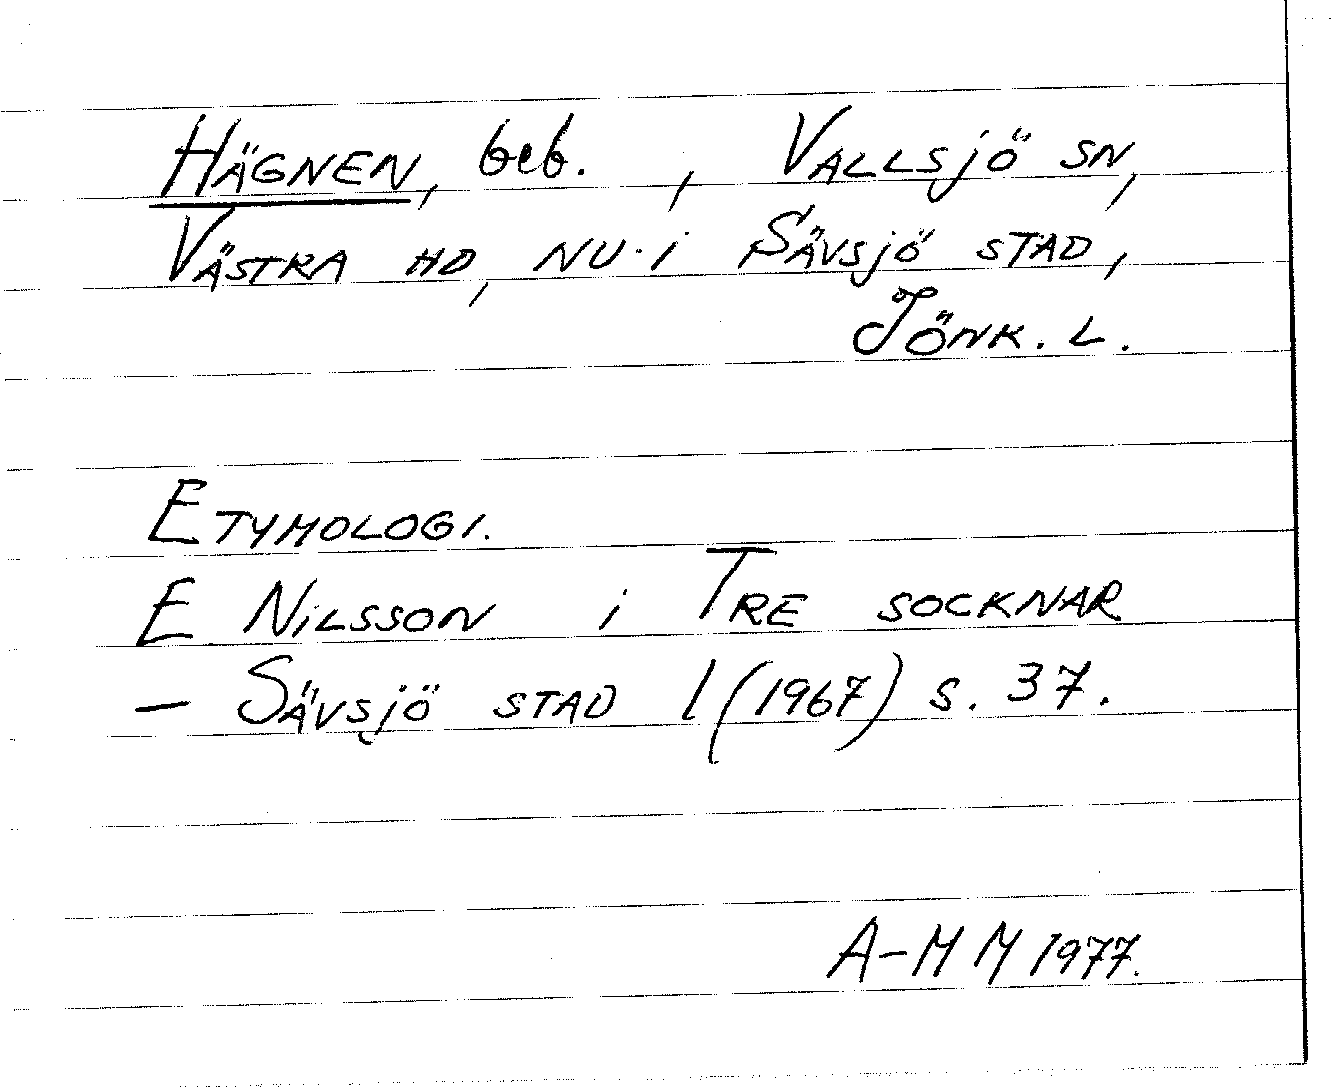 HÄGNEN, beb. , VALLSJÖ SN,
VÄSTRA HD, NU I SÄVSJÖ STAD,
JÖNK. L.
ETYMOLOGI.
E NILSSON i TRE SOCKNAR
– SÄVSJÖ STAD 1 (1967) S. 37.
A-M M 1977.